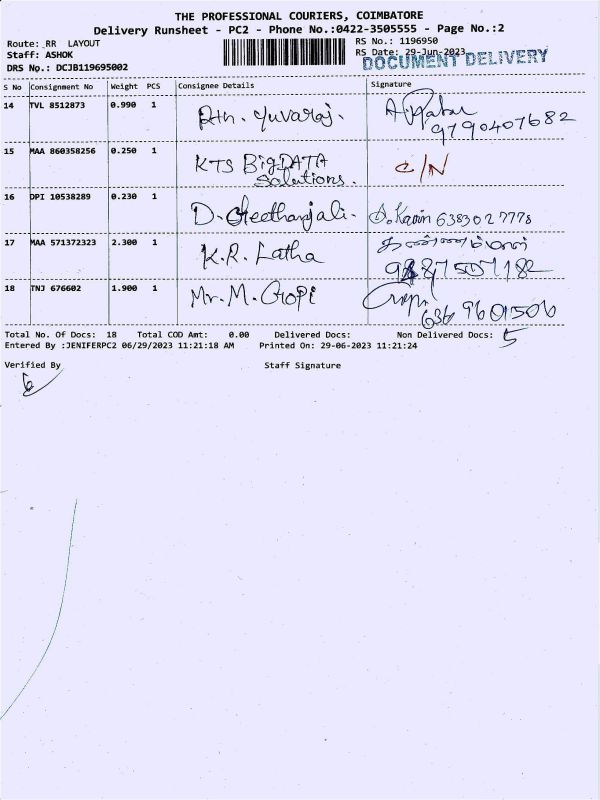 THE PROFESSIONAL COURIERS, COIMBATORE
Delivery Runsheet - PC2 - Phone No.:0422-3505555 - Page No.:2
Route: RR LAYOUT
RS No.: 1196950
Staff: ASHOK
RS Date: 29-Jun-2023
DOCUMENT DELIVERY
DRS No.: DCJB119695002
S No Consignment No Weight PCS Consignee Details Signature
14 TVL 8512873 0.990 1 Yuvaraj.
9790407682
15 MAA 860358256 0.250 1 KTS BigDATA C/N
Solutions.
16 DPI 10538289 0.230 1 D. Geethanjali. 6383027778
17 MAA 571372323 2.300 1 K.R. Latha
18 TNJ 676602 1.900 1 Mr. M. Gopi
636 9601506
Total No. Of Docs: 18 Total COD Amt: 0.00 Delivered Docs: Non Delivered Docs: 5
Entered By :JENIFERPC2 06/29/2023 11:21:18 AM Printed On: 29-06-2023 11:21:24
Verified By Staff Signature